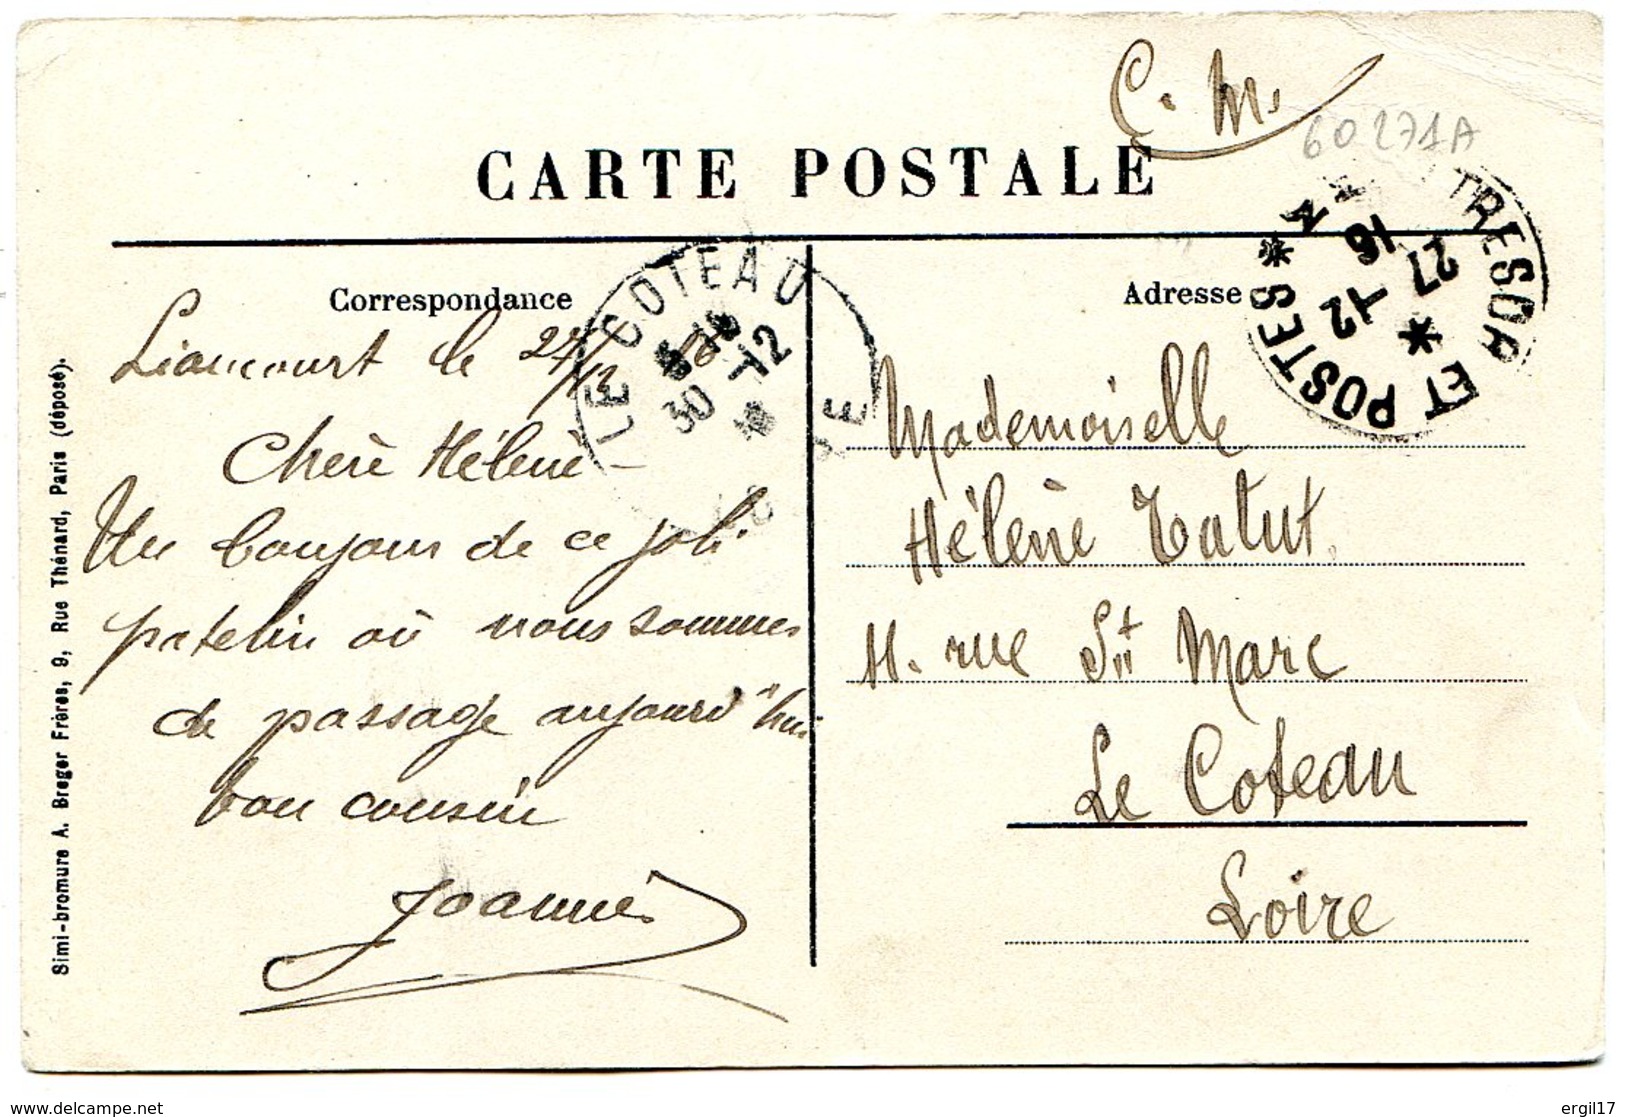 C. M.
60271A
CARTE POSTALE
TRESOR ET POSTES * M
27 12
16
*
LE COTEAU
30 12
Correspondance
Liancourt le 27/12 16
Chère Hélène -
Un bonjour de ce joli
patelin où nous sommes
de passage aujourd'hui
bon cousin
Joannès
Adresse
Mademoiselle
Hélène Tatut
11. rue St Marc
Le Coteau
Loire
Simi-bromure A. Breger Frères, 9, Rue Thénard, Paris (déposé).
ergil17